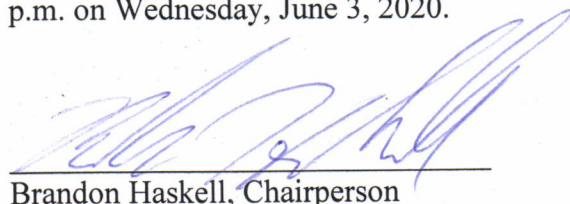 p.m. on Wednesday, June 3, 2020.
Brandon Haskell, Chairperson